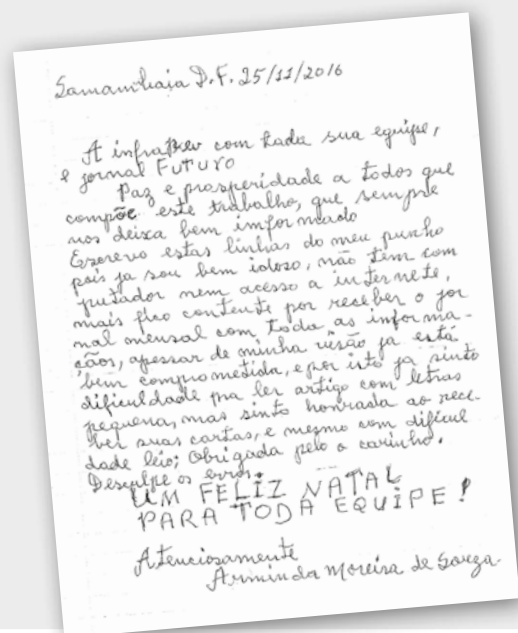 Samambaia D.F. 25/11/2016
A infraprev com toda sua equipe,
e jornal FUTURO
Paz e prosperidade a todos que
compõe este trabalho, que sempre
nos deixa bem imformado
Escrevo estas linhas do meu punho
pois ja sou bem idoso, não tem com
putador nem acesso a internete,
mais fico contente por receber o jor
nal mensal com toda as informa-
ções, apessar de minha visão ja está
bem comprometida, e por isto ja sinto
dificuldade pra ler artigo com letras
pequena, mas sinto honrada ao rece-
ber suas cartas, e mesmo com dificul
dade leio; Obrigada pelo o carinho.
Desculpe os erros.
UM FELIZ NATAL
PARA TODA EQUIPE!
Atenciosamente
Arminda Moreira de Souza